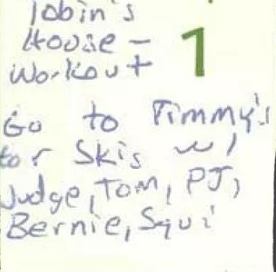 Tobin's
House -
Workout
1
Go to Timmy's
for Skis w/
Judge, Tom, PJ,
Bernie, Squi